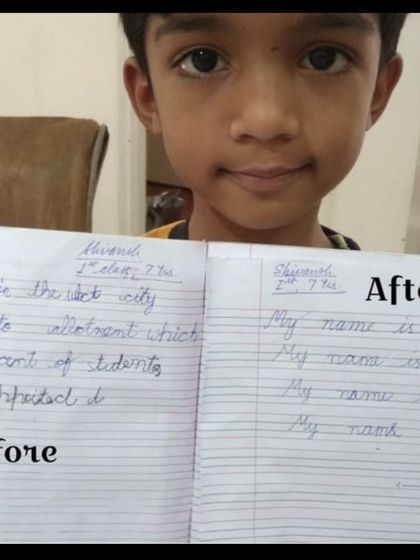 Shivansh
1st class, 7 Yrs.
the city
to allotment which
cent of students
Before
Shivansh
1st, 7 Yrs.
After
My name is
My name is
My name
My name